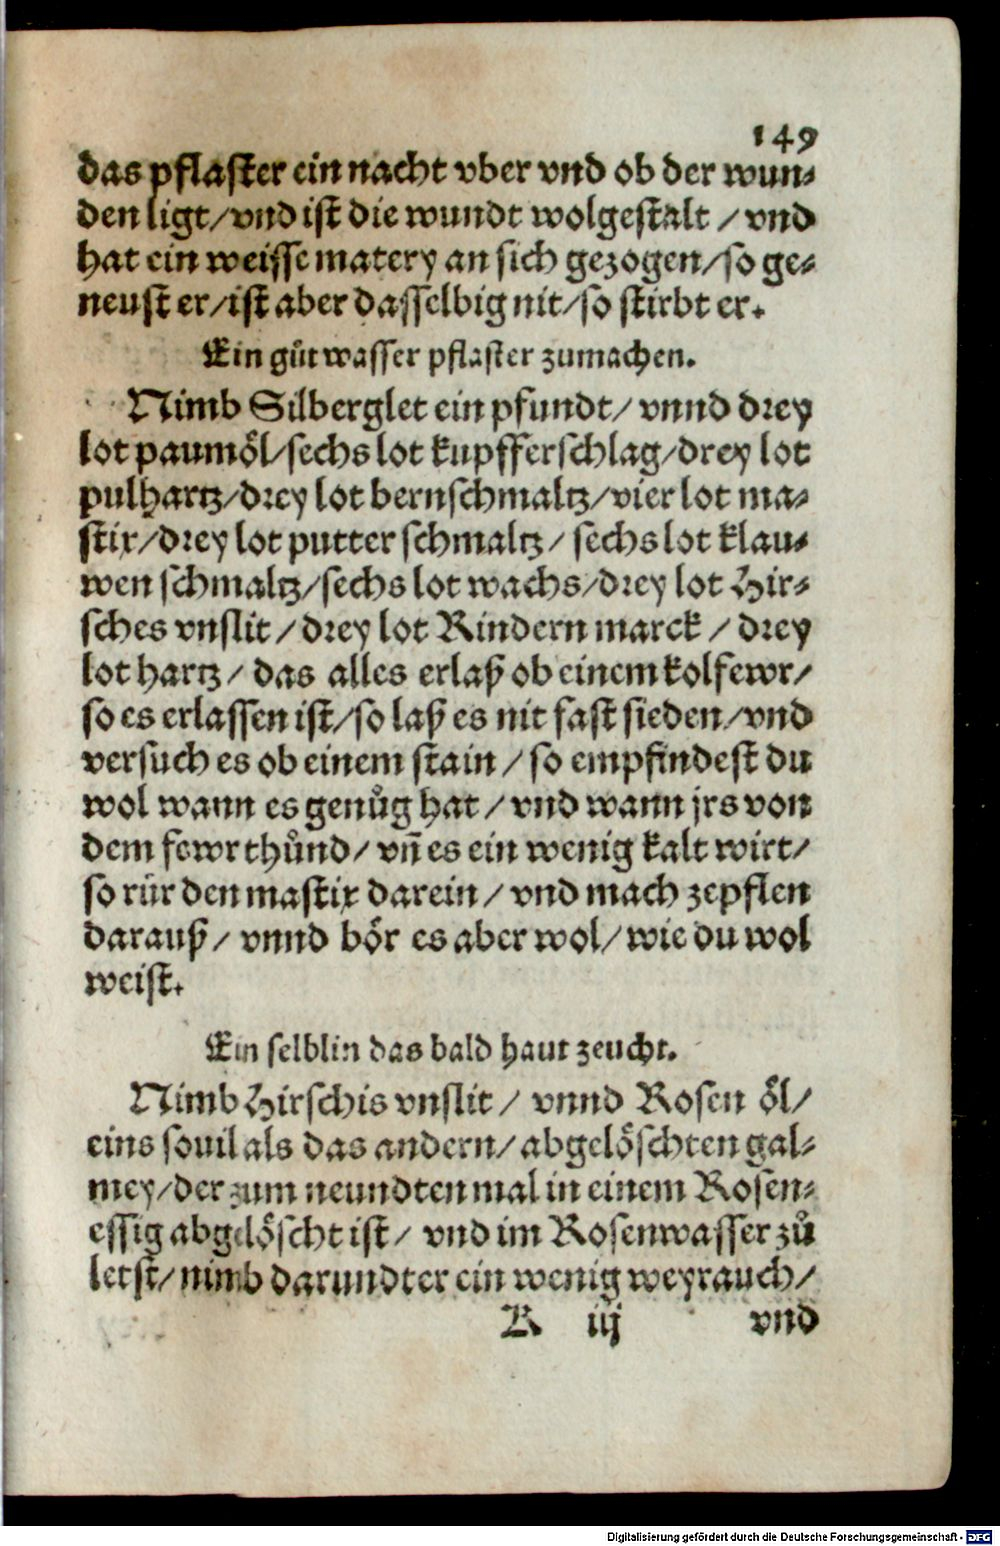 149
das pflaster ein nacht vber vnd ob der wun⸗
den ligt/vnd ist die wundt wolgestalt /vnd
hat ein weisse matery an sich gezogen/so ge⸗
neust er/ist aber dasselbig nit/so stirbt er.
Ein gůt wasser pflaster zumachen.
Nimb Silberglet ein pfundt/ vnnd drey
lot paumöl/sechs lot kupfferschlag/drey lot
pulhartz/drey lot bernschmaltz/vier lot ma⸗
stix/drey lot putter schmaltz/ sechs lot klau⸗
wen schmaltz/sechs lot wachs/drey lot Hir⸗
sches vnslit/ drey lot Rindern marck/ drey
lot hartz/ das alles erlaß ob einem kolfewr/
so es erlassen ist/so laß es nit fast sieden/vnd
versuch es ob einem stain/ so empfindest du
wol wann es genůg hat/ vnd wann jrs von
dem fewr thůnd/ vn̄ es ein wenig kalt wirt/
so rür den mastix darein/ vnd mach zepflen
darauß/ vnnd bör es aber wol/ wie du wol
weist.
Ein selblin das bald haut zeucht.
Nimb Hirschis vnslit/ vnnd Rosen öl/
eins souil als das andern/ abgelöschten gal⸗
mey/der zum neundten mal in einem Rosen⸗
essig abgelöscht ist/ vnd im Rosenwasser zů
letst/ nimb darundter ein wenig weyrauch/
R iij vnd
Digitalisierung gefördert durch die Deutsche Forschungsgemeinschaft - DFG